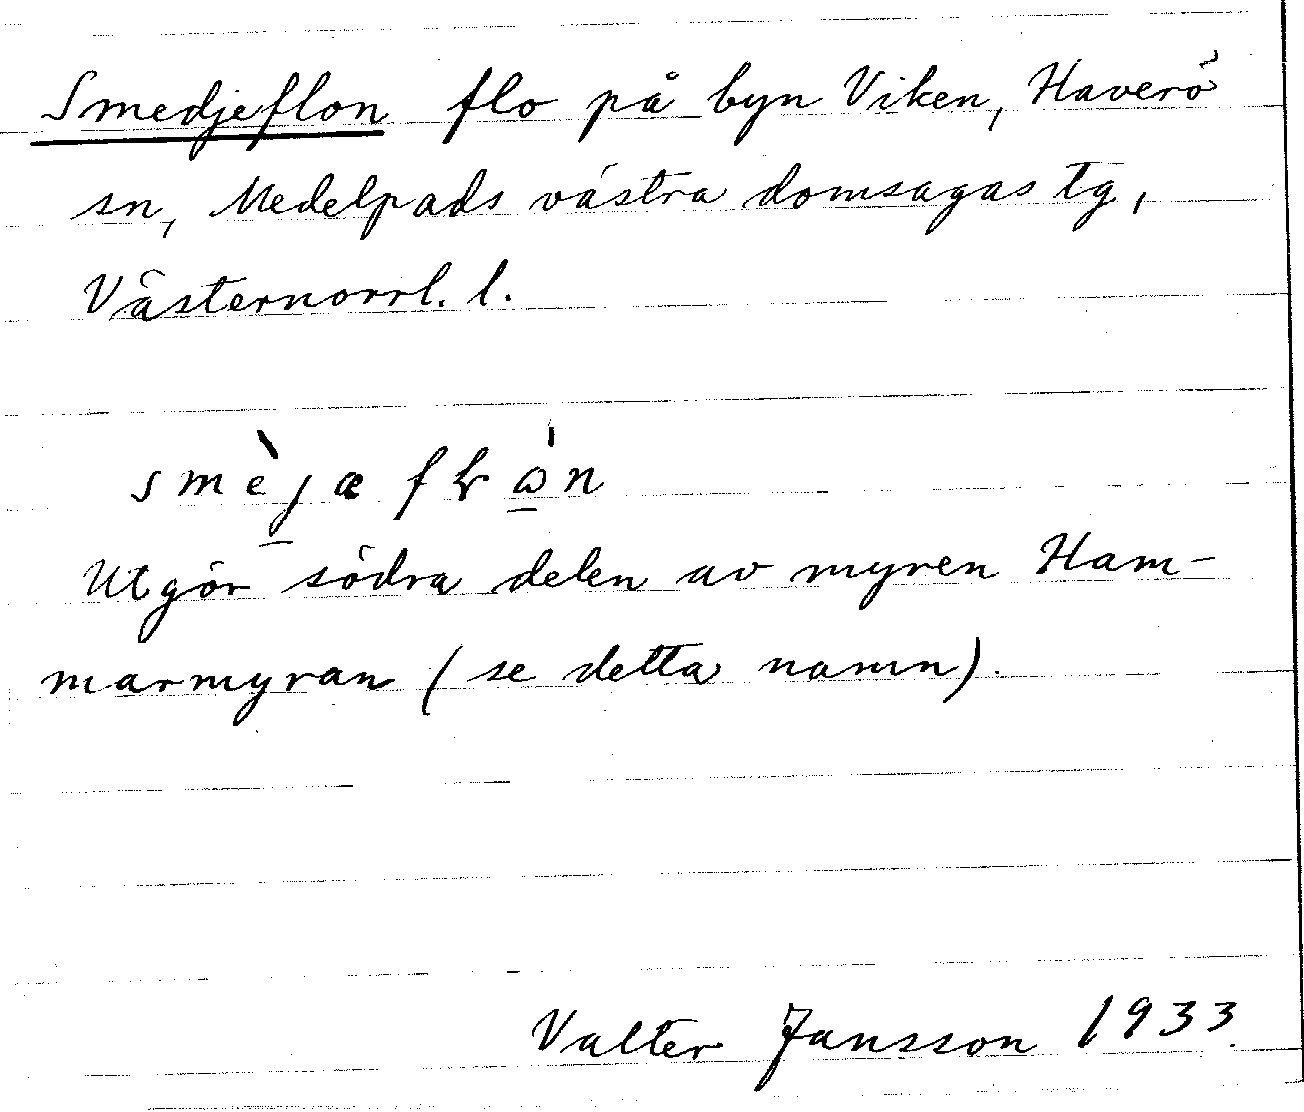 Smedjeflon flo på byn Viken, Haverö
sn, Medelpads västra domsagas tg,
Västernorrl. l.
smèjæ fłωn
Utgör södra delen av myren Ham-
marmyran (se detta namn).
Valter Jansson 1933.